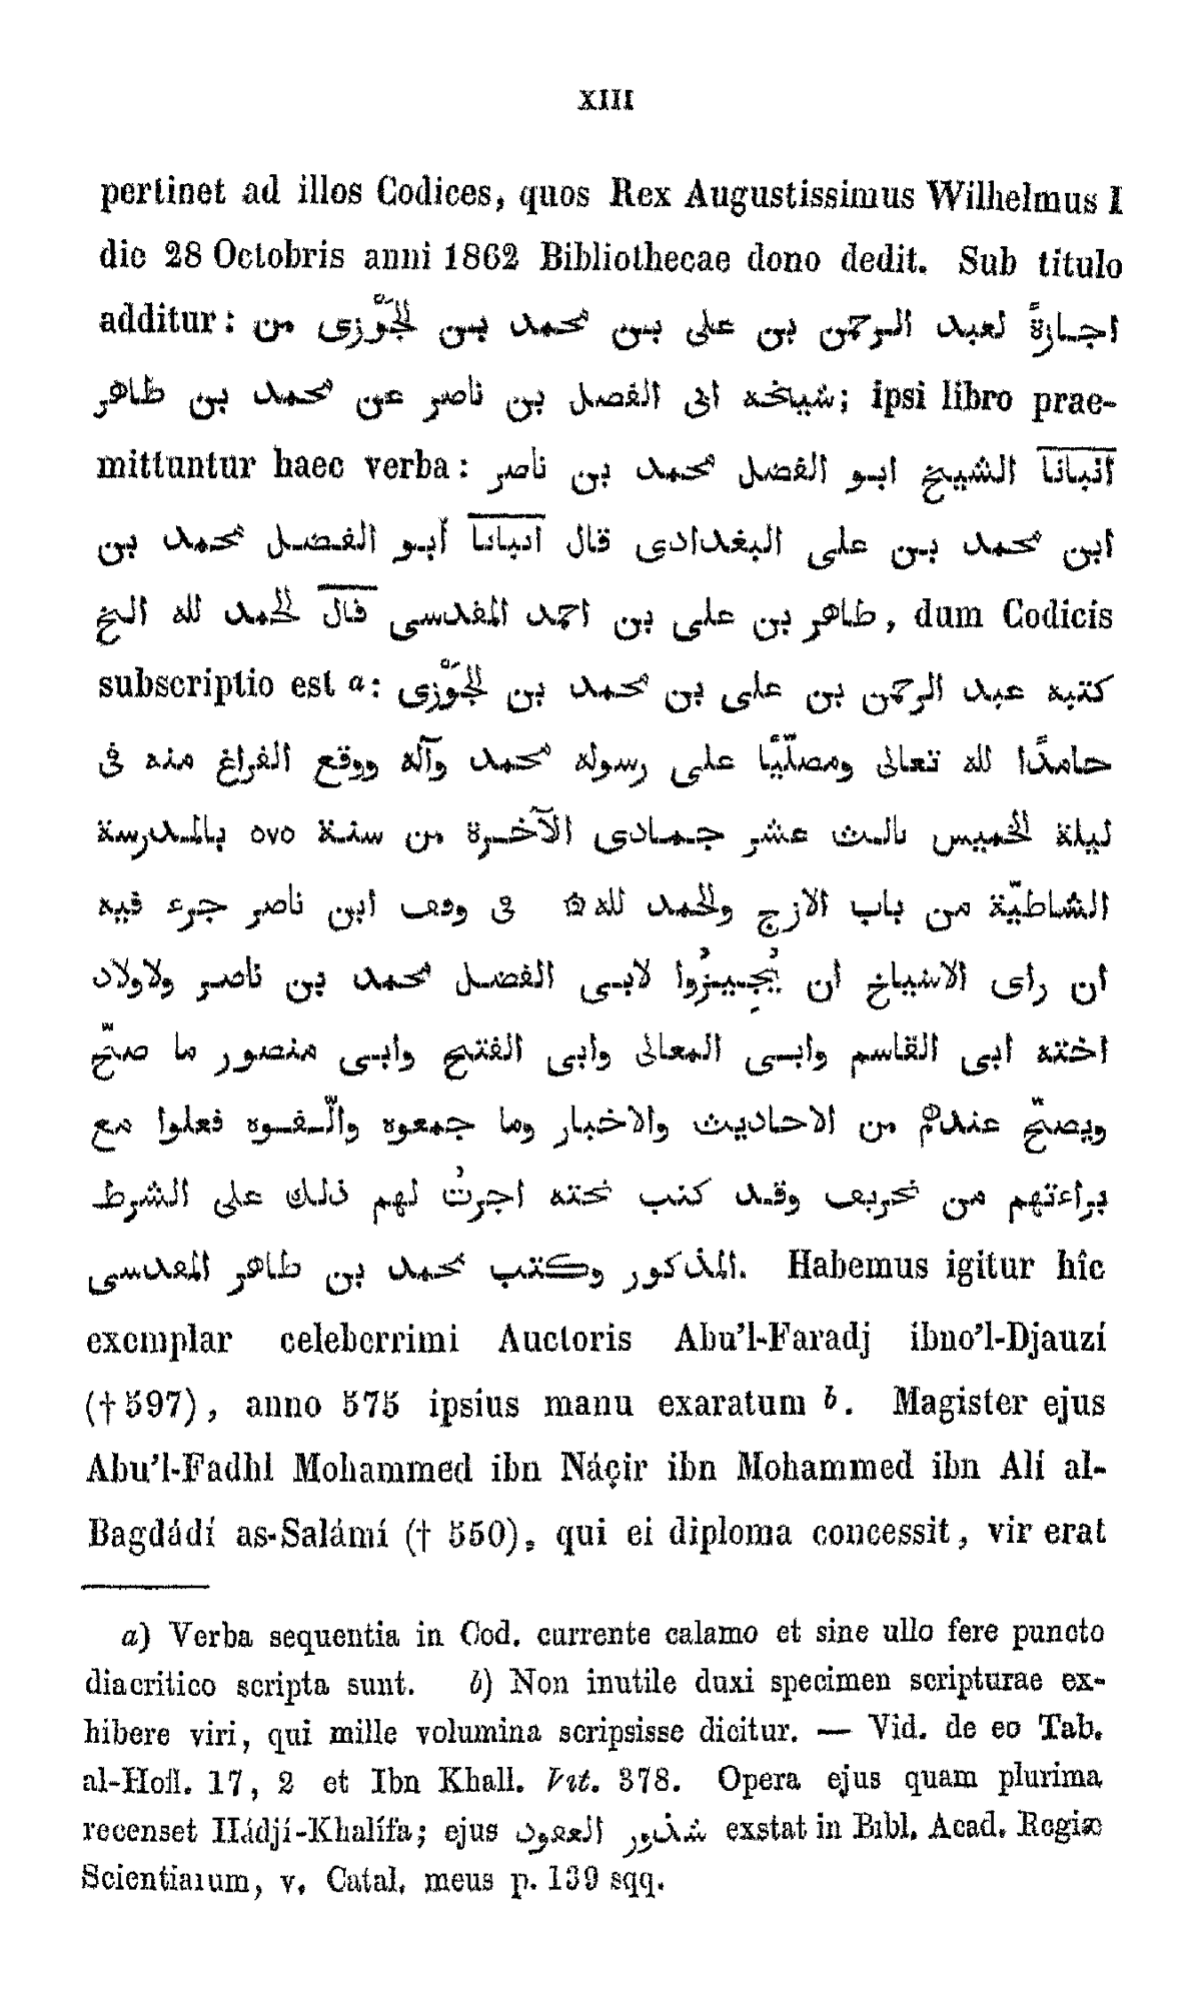 XIII
pertinet ad illos Codices, quos Rex Augustissimus Wilhelmus I
die 28 Octobris anni 1862 Bibliothecae dono dedit. Sub titulo
additur: اجازةً لعبد الرحمن بن على بن محمد بن الجَوْزى من
شيخه ابى الفضل بن ناصر عن محمد بن طاهر; ipsi libro prae-
mittuntur haec verba: انبانا الشيخ ابو الفضل محمد بن ناصر
ابن محمد بن على البغدادى قال انبانا أبو الفضل محمد بن
طاهر بن على بن احمد المقدسى قال الحمد لله الخ, dum Codicis
subscriptio est a: كتبه عبد الرحمن بن على بن محمد بن الجَوْزى
حامدًا لله تعالى ومصلّيًا على رسوله محمد وآله ووقع الفراغ منه فى
ليلة الخميس ثالث عشر جمادى الآخرة من سنة ٥٧٥ بالمدرسة
الشاطيّة من باب الازج والحمد لله ۞ فى وقف ابن ناصر جزء فيه
ان راى الاشياخ ان يُجِيزُوا لابى الفضل محمد بن ناصر ولاولاد
اخته ابى القاسم وابى المعالى وابى الفتح وابى منصور ما صحّ
ويصحّ عندهم من الاحاديث والاخبار وما جمعوه والّفوه فعلوا مع
براءتهم من تحريف وقد كتب تحته اجزتُ لهم ذلك على الشرط
المذكور وكتب محمد بن طاهر المقدسى. Habemus igitur hîc
exemplar celeberrimi Auctoris Abu’l-Faradj ibno’l-Djauzí
(† 597), anno 575 ipsius manu exaratum b. Magister ejus
Abu’l-Fadhl Mohammed ibn Náçir ibn Mohammed ibn Alí al-
Bagdádí as-Salámí († 550), qui ei diploma concessit, vir erat
a) Verba sequentia in Cod. currente calamo et sine ullo fere puncto
diacritico scripta sunt. b) Non inutile duxi specimen scripturae ex-
hibere viri, qui mille volumina scripsisse dicitur. — Vid. de eo Tab.
al-Hoff. 17, 2 et Ibn Khall. Vit. 378. Opera ejus quam plurima
recenset Hádjí-Khalífa; ejus شذور العقود exstat in Bibl. Acad. Regiæ
Scientiarum, v. Catal. meus p. 139 sqq.